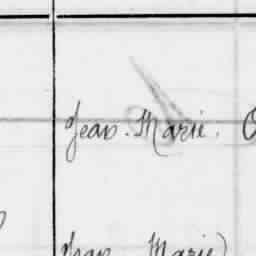 Jean. Marie.
Jean Marie